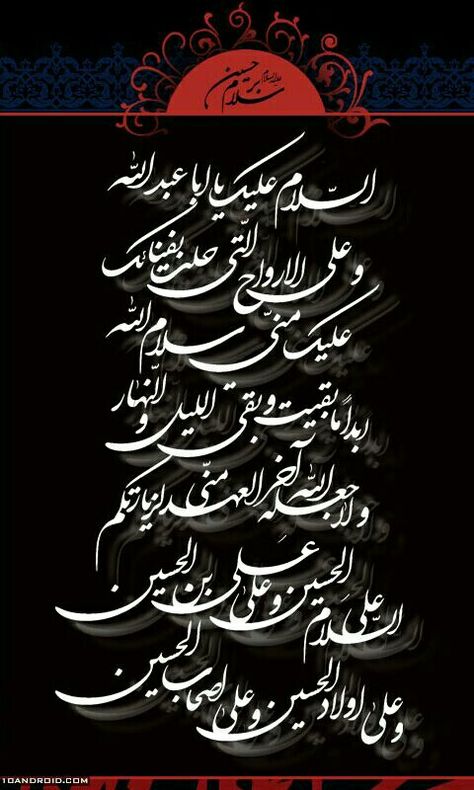 سلام بر حسین علیه السلام
السّلام علیک یا ابا عبدالله
و علی الارواح الّتی حلت بفنائک
علیک منّی سلام الله
ابداً ما بقیت و بقی اللیل و النّهار
و لا جعله الله آخر العهد منّی لزیارتکم
السّلام علی الحسین و علی علی بن الحسین
و علی اولاد الحسین و علی اصحاب الحسین
10ANDROID.COM